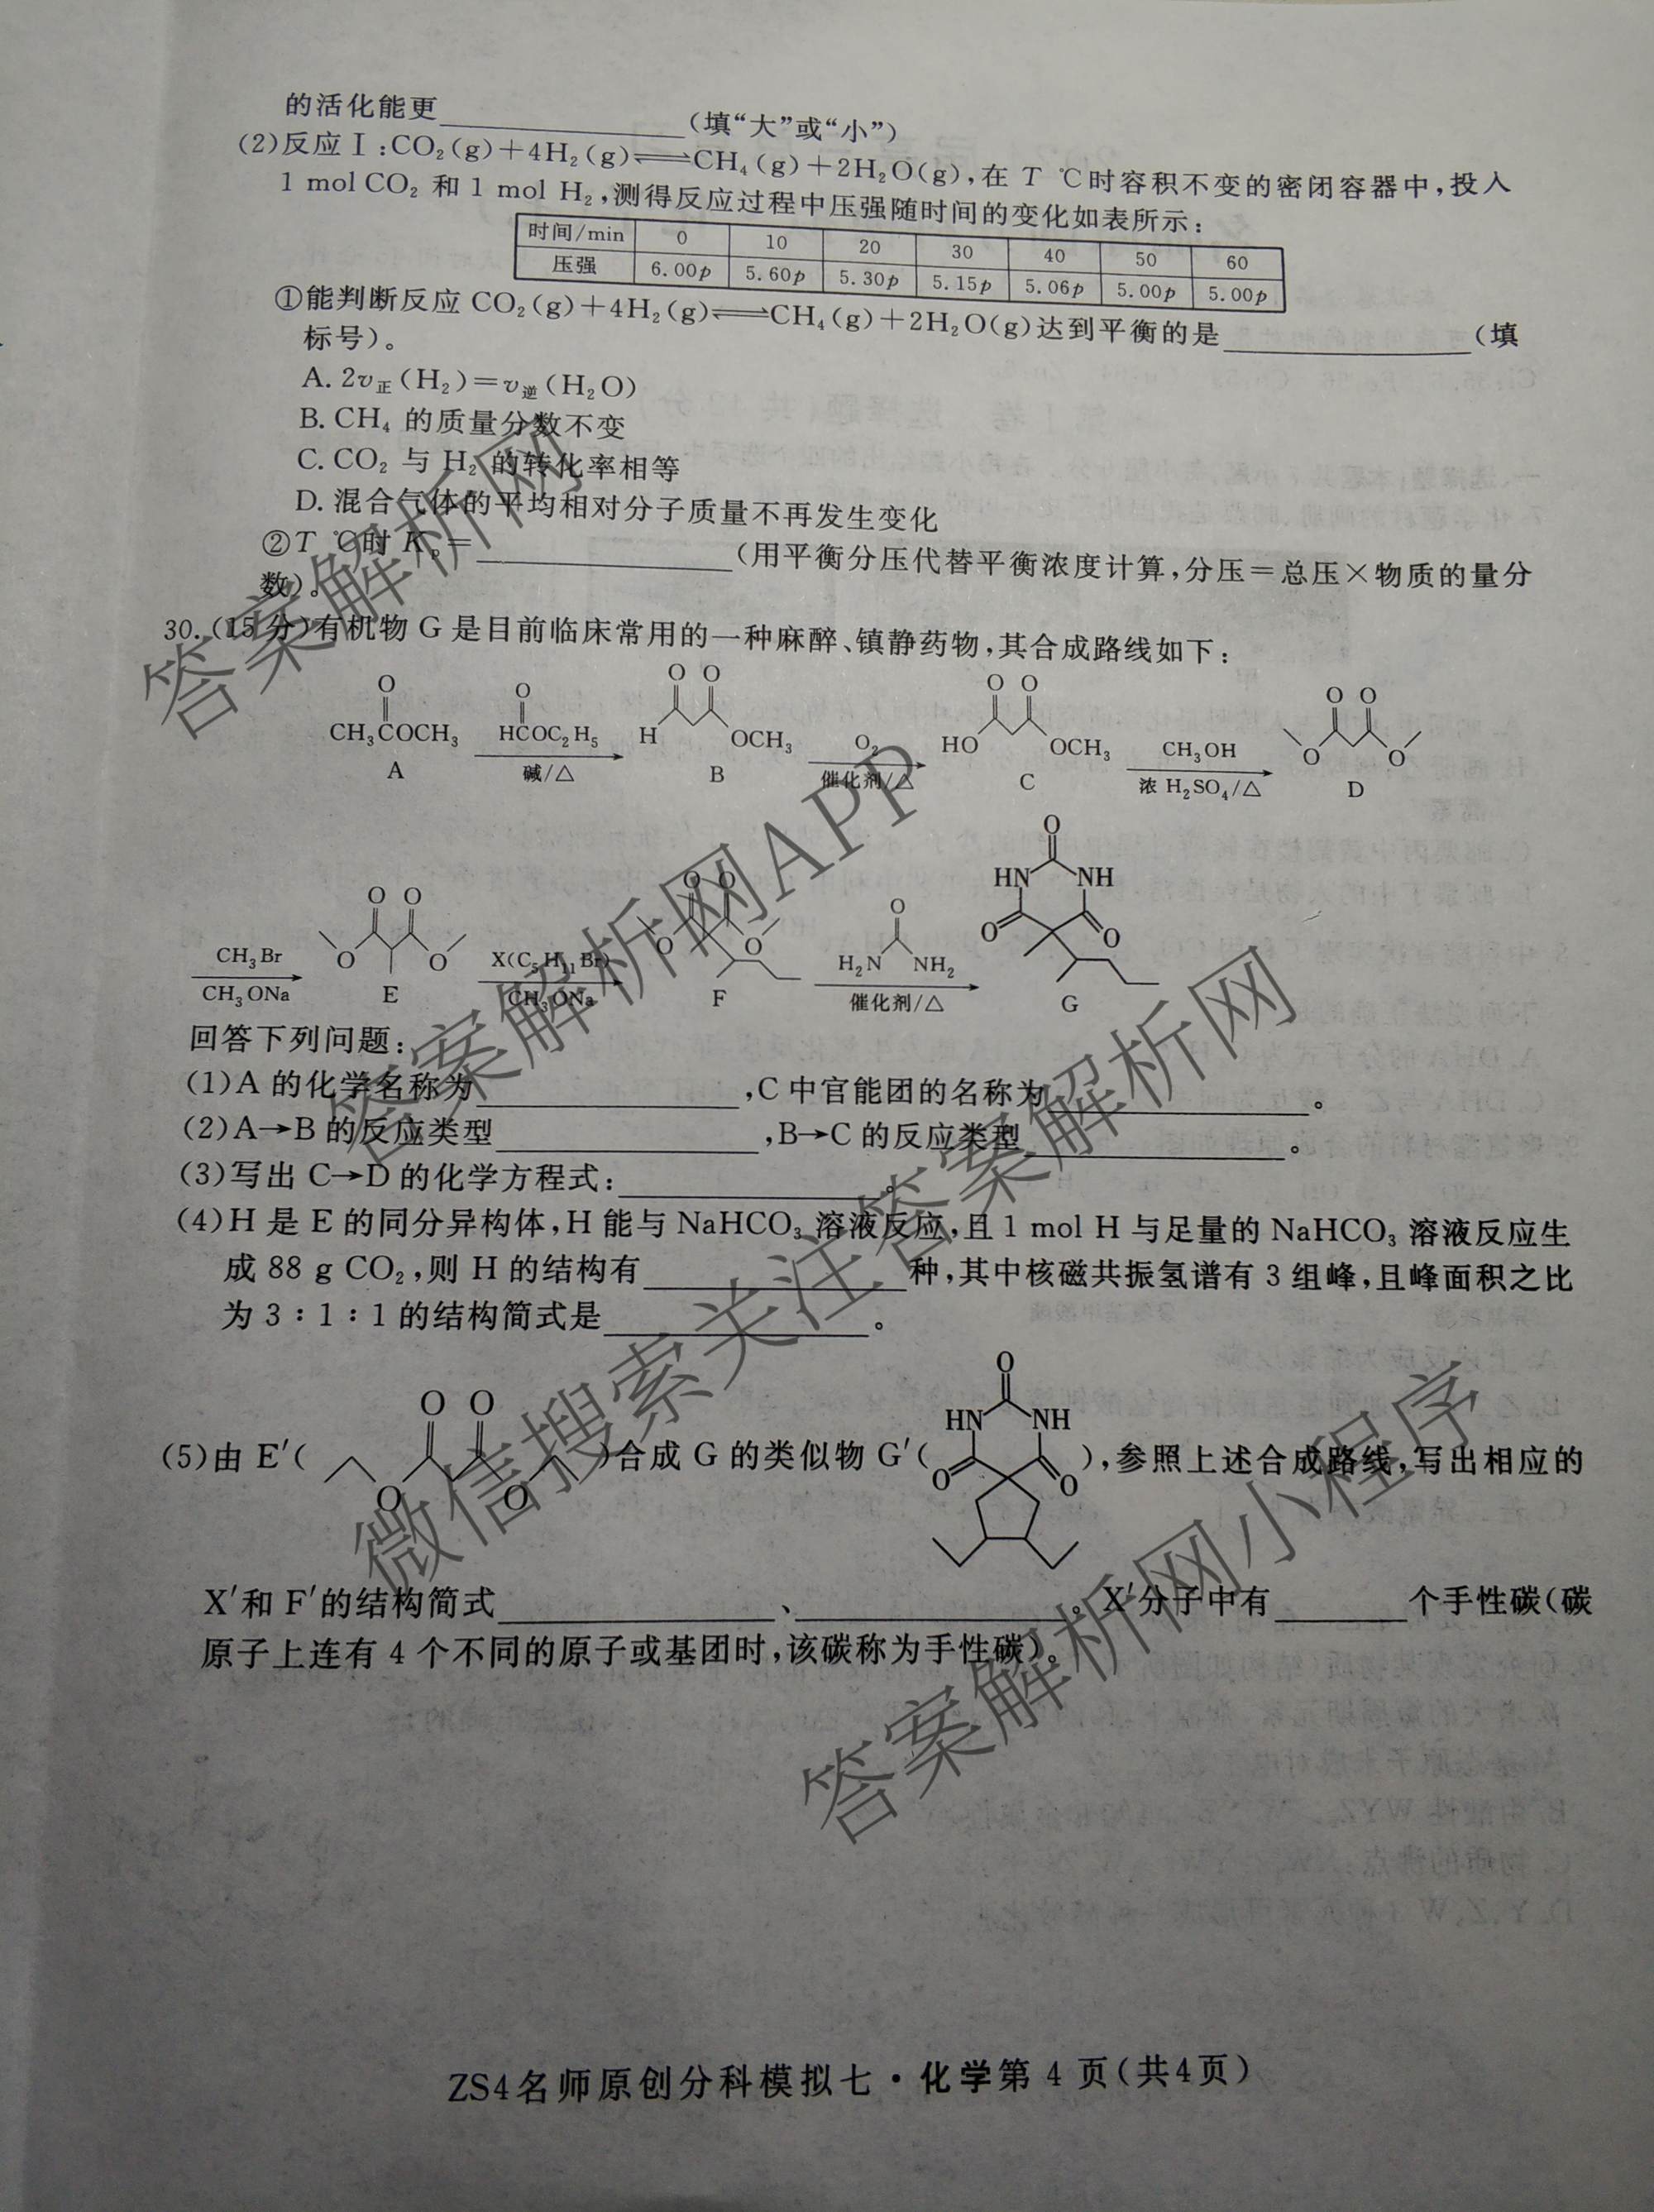 的活化能更________(填“大”或“小”)
(2)反应Ⅰ:CO₂(g)+4H₂(g)⇌CH₄(g)+2H₂O(g),在 T ℃时容积不变的密闭容器中,投入
1 mol CO₂ 和 1 mol H₂,测得反应过程中压强随时间的变化如表所示:
时间/min 0 10 20 30 40 50 60
压强 6.00p 5.60p 5.30p 5.15p 5.06p 5.00p 5.00p
①能判断反应 CO₂(g)+4H₂(g)⇌CH₄(g)+2H₂O(g)达到平衡的是________(填
标号)。
A. 2v正(H₂)=v逆(H₂O)
B. CH₄ 的质量分数不变
C. CO₂ 与 H₂ 的转化率相等
D. 混合气体的平均相对分子质量不再发生变化
②T ℃时 Kₚ=________(用平衡分压代替平衡浓度计算,分压=总压×物质的量分
数)。
30.(15 分)有机物 G 是目前临床常用的一种麻醉、镇静药物,其合成路线如下:
O O O O O O O O
CH₃COCH₃ HCOC₂H₅ H OCH₃ O₂ HO OCH₃ CH₃OH O O
A 碱/△ B 催化剂/△ C 浓 H₂SO₄/△ D
O
HN NH
O O O O O O O
CH₃Br O O X(C₅H₁₁Br) O O H₂N NH₂
CH₃ONa E CH₃ONa F 催化剂/△ G
回答下列问题:
(1)A 的化学名称为________,C 中官能团的名称为________。
(2)A→B 的反应类型________,B→C 的反应类型________。
(3)写出 C→D 的化学方程式:________。
(4)H 是 E 的同分异构体,H 能与 NaHCO₃ 溶液反应,且 1 mol H 与足量的 NaHCO₃ 溶液反应生
成 88 g CO₂,则 H 的结构有________种,其中核磁共振氢谱有 3 组峰,且峰面积之比
为 3∶1∶1 的结构简式是________。
O
O O HN NH
(5)由 E′( )合成 G 的类似物 G′( ),参照上述合成路线,写出相应的
O O O O
X′和 F′的结构简式________、________。X′分子中有________个手性碳(碳
原子上连有 4 个不同的原子或基团时,该碳称为手性碳)。
ZS4名师原创分科模拟七·化学第 4 页(共4页)
答案解析网
答案解析网APP
微信搜索关注答案解析网
答案解析网小程序